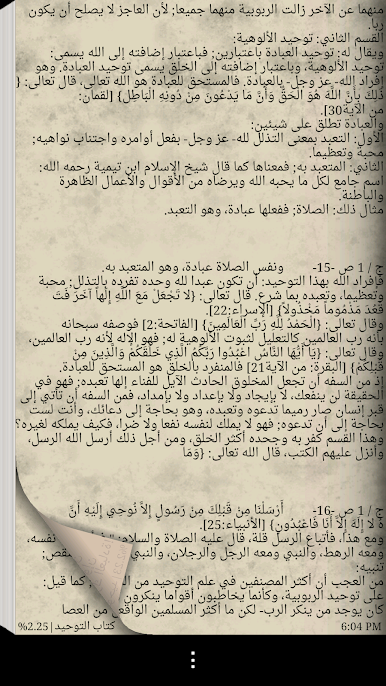 منهما عن الآخر زالت الربوبية منهما جميعا; لأن العاجز لا يصلح أن يكون
ربا.
القسم الثاني: توحيد الألوهية:
ويقال له: توحيد العبادة باعتبارين; فباعتبار إضافته إلى الله يسمى:
توحيد الألوهية، وباعتبار إضافته إلى الخلق يسمى توحيد العبادة. وهو
إفراد الله- عز وجل- بالعبادة. فالمستحق للعبادة هو الله تعالى، قال تعالى: {
ذَلِكَ بِأَنَّ اللَّهَ هُوَ الْحَقُّ وَأَنَّ مَا يَدْعُونَ مِنْ دُونِهِ الْبَاطِلُ} [لقمان:
من الآية30].
والعبادة تطلق على شيئين:
الأول: التعبد بمعنى التذلل لله- عز وجل- بفعل أوامره واجتناب نواهيه;
محبة وتعظيما.
الثاني: المتعبد به; فمعناها كما قال شيخ الإسلام ابن تيمية رحمه الله:
اسم جامع لكل ما يحبه الله ويرضاه من الأقوال والأعمال الظاهرة
والباطنة.
مثال ذلك: الصلاة; ففعلها عبادة، وهو التعبد.
ج / 1 ص -15- ونفس الصلاة عبادة، وهو المتعبد به.
فإفراد الله بهذا التوحيد: أن تكون عبدا لله وحده تفرده بالتذلل; محبة
وتعظيما، وتعبده بما شرع. قال تعالى: {لا تَجْعَلْ مَعَ اللَّهِ إِلَهاً آخَرَ فَتَ
قْعُدَ مَذْمُوماً مَخْذُولاً} [الإسراء:22].
وقال تعالى: {الْحَمْدُ لِلَّهِ رَبِّ الْعَالَمِينَ} [الفاتحة:2] فوصفه سبحانه
بأنه رب العالمين كالتعليل لثبوت الألوهية له; فهو الإله لأنه رب العالمين،
وقال تعالى: {يَا أَيُّهَا النَّاسُ اعْبُدُوا رَبَّكُمُ الَّذِي خَلَقَكُمْ وَالَّذِينَ مِنْ
قَبْلِكُمْ} [البقرة: من الآية21] فالمنفرد بالخلق هو المستحق للعبادة.
إذ من السفه أن تجعل المخلوق الحادث الآيل للفناء إلها تعبده; فهو في
الحقيقة لن ينفعك، لا بإيجاد ولا بإعداد ولا بإمداد، فمن السفه أن تأتي إلى
قبر إنسان صار رميما تدعوه وتعبده، وهو بحاجة إلى دعائك، وأنت لست
بحاجة إلى أن تدعوه; فهو لا يملك لنفسه نفعا ولا ضرا، فكيف يملكه لغيره؟
وهذا القسم كفر به وجحده أكثر الخلق، ومن أجل ذلك أرسل الله الرسل،
وأنزل عليهم الكتب، قال الله تعالى: {وَمَا
ج / 1 ص -16- أَرْسَلْنَا مِنْ قَبْلِكَ مِنْ رَسُولٍ إِلاَّ نُوحِي إِلَيْهِ أَنَّ
هُ لا إِلَهَ إِلاَّ أَنَا فَاعْبُدُونِ} [الأنبياء:25].
ومع هذا، فأتباع الرسل قلة، قال عليه الصلاة والسلام: نفسه،
ومعه الرهط، والنبي ومعه الرجل والرجلان، والنبي
تنبيه:
من العجب أن أكثر المصنفين في علم التوحيد من كما قيل:
على توحيد الربوبية، وكأنما يخاطبون أقواما ينكرون
كان يوجد من ينكر الرب- لكن ما أكثر المسلمين الواقع من العصا
كتاب التوحيد|2.25% 6:04 PM